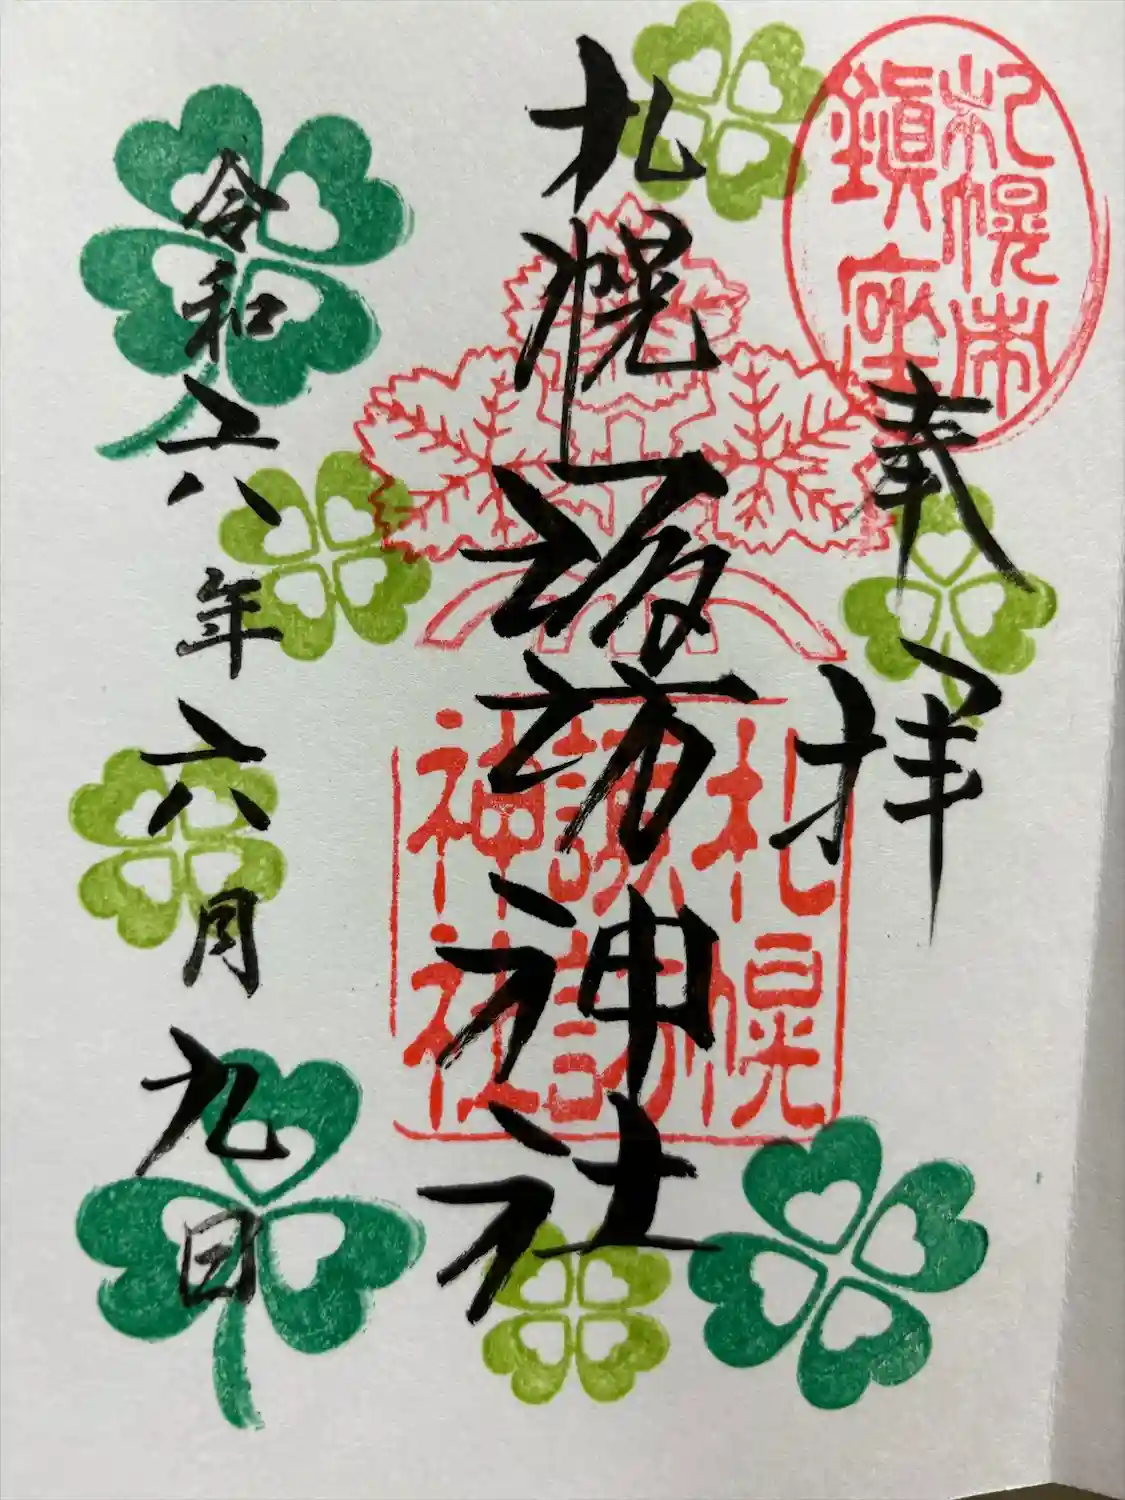 札幌市
鎮座
奉拝
札幌諏訪神社
札幌
諏訪
神社
令和六年六月九日